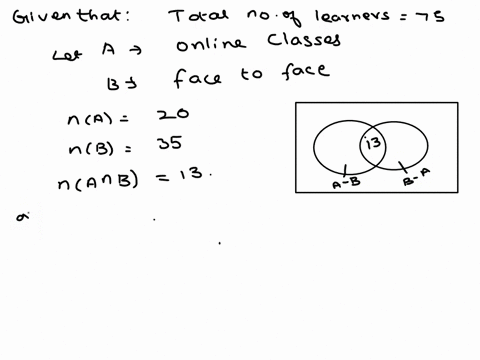 Given that: Total no. of learners = 75
Let A → online Classes
B → face to face
n(A) = 20
n(B) = 35
n(A∩B) = 13.
13
A-B
B-A